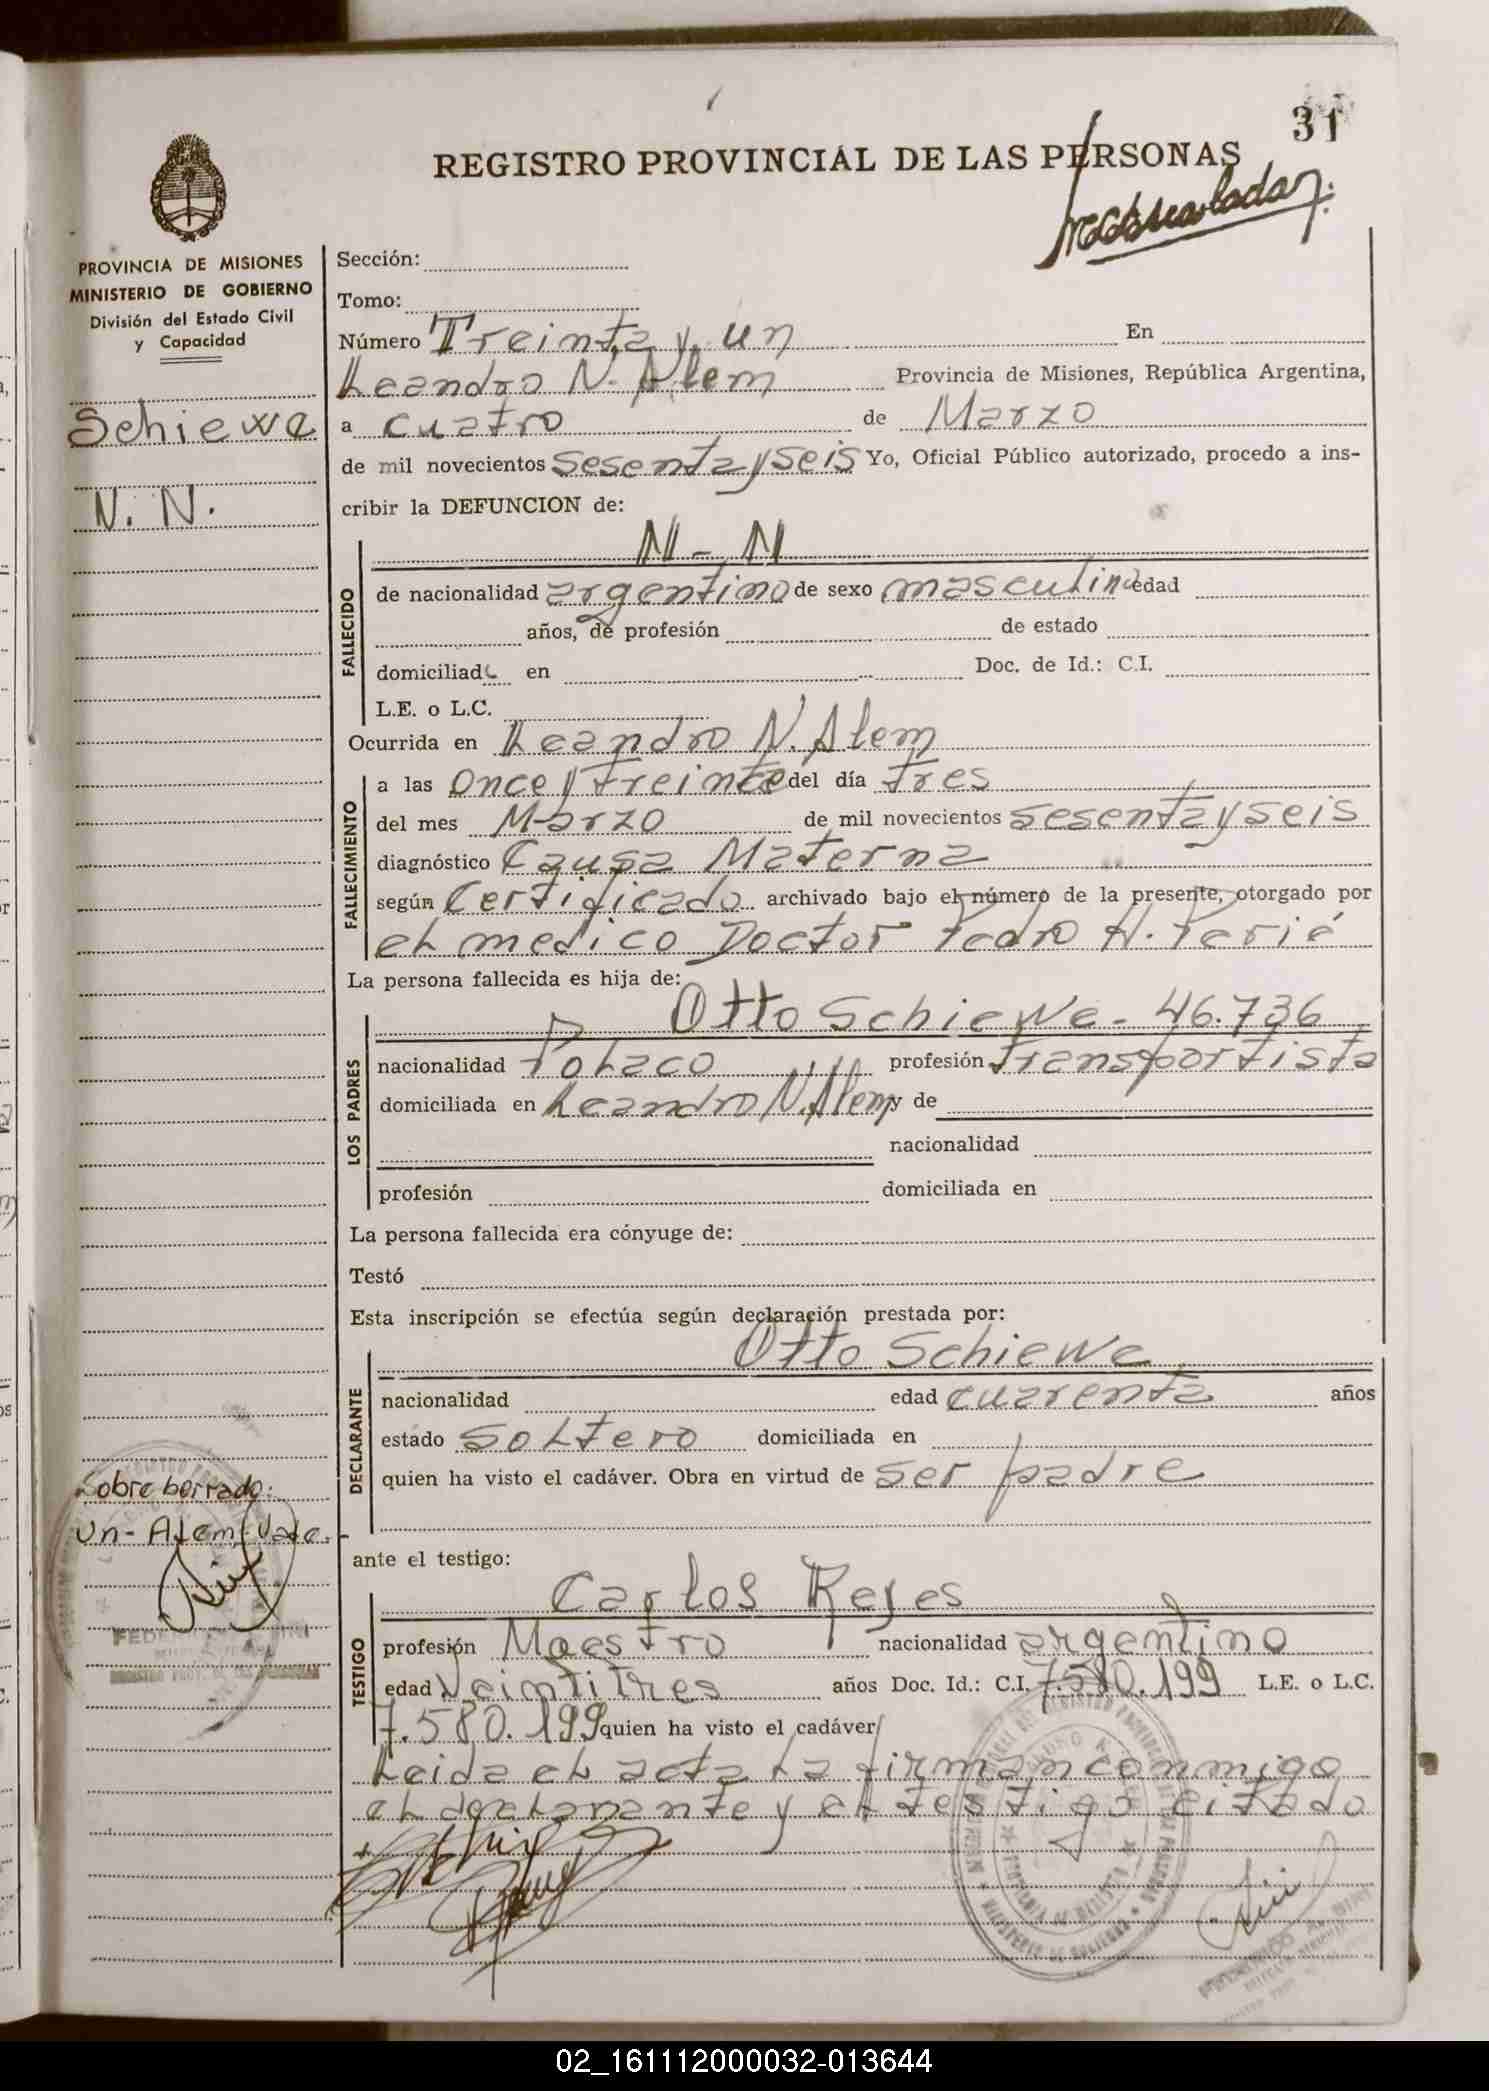 31
REGISTRO PROVINCIAL DE LAS PERSONAS
PROVINCIA DE MISIONES
MINISTERIO DE GOBIERNO
División del Estado Civil
y Capacidad
Schiewe
N. N.
Sección:
Tomo:
Número Treinta y un En
Leandro N. Alem Provincia de Misiones, República Argentina,
a cuatro de Marzo
de mil novecientos sesenta y seis Yo, Oficial Público autorizado, procedo a ins-
cribir la DEFUNCION de:
N - N
FALLECIDO
de nacionalidad argentino de sexo masculino edad
años, de profesión de estado
domiciliad en Doc. de Id.: C.I.
L.E. o L.C.
Ocurrida en Leandro N. Alem
FALLECIMIENTO
a las once y treinta del día tres
del mes Marzo de mil novecientos sesenta y seis
diagnóstico Causa Materna
según Certificado archivado bajo el número de la presente, otorgado por
el medico Doctor Pedro H. Perié
La persona fallecida es hija de:
Otto Schiewe - 46.736
LOS PADRES
nacionalidad Polaco profesión Transportista
domiciliada en Leandro N. Alem y de
nacionalidad
profesión domiciliada en
La persona fallecida era cónyuge de:
Testó
Esta inscripción se efectúa según declaración prestada por:
Otto Schiewe
DECLARANTE
nacionalidad edad cuarenta años
estado soltero domiciliada en
quien ha visto el cadáver. Obra en virtud de ser padre
Sobre borrado:
Un - Alem - Vale.-
ante el testigo:
Carlos Reyes
TESTIGO
profesión Maestro nacionalidad argentino
edad Veintitres años Doc. Id.: C.I. 7.580.199 L.E. o L.C.
7.580.199 quien ha visto el cadáver
Leida el acta la firman conmigo
el declarante y el testigo citado
02_161112000032-013644